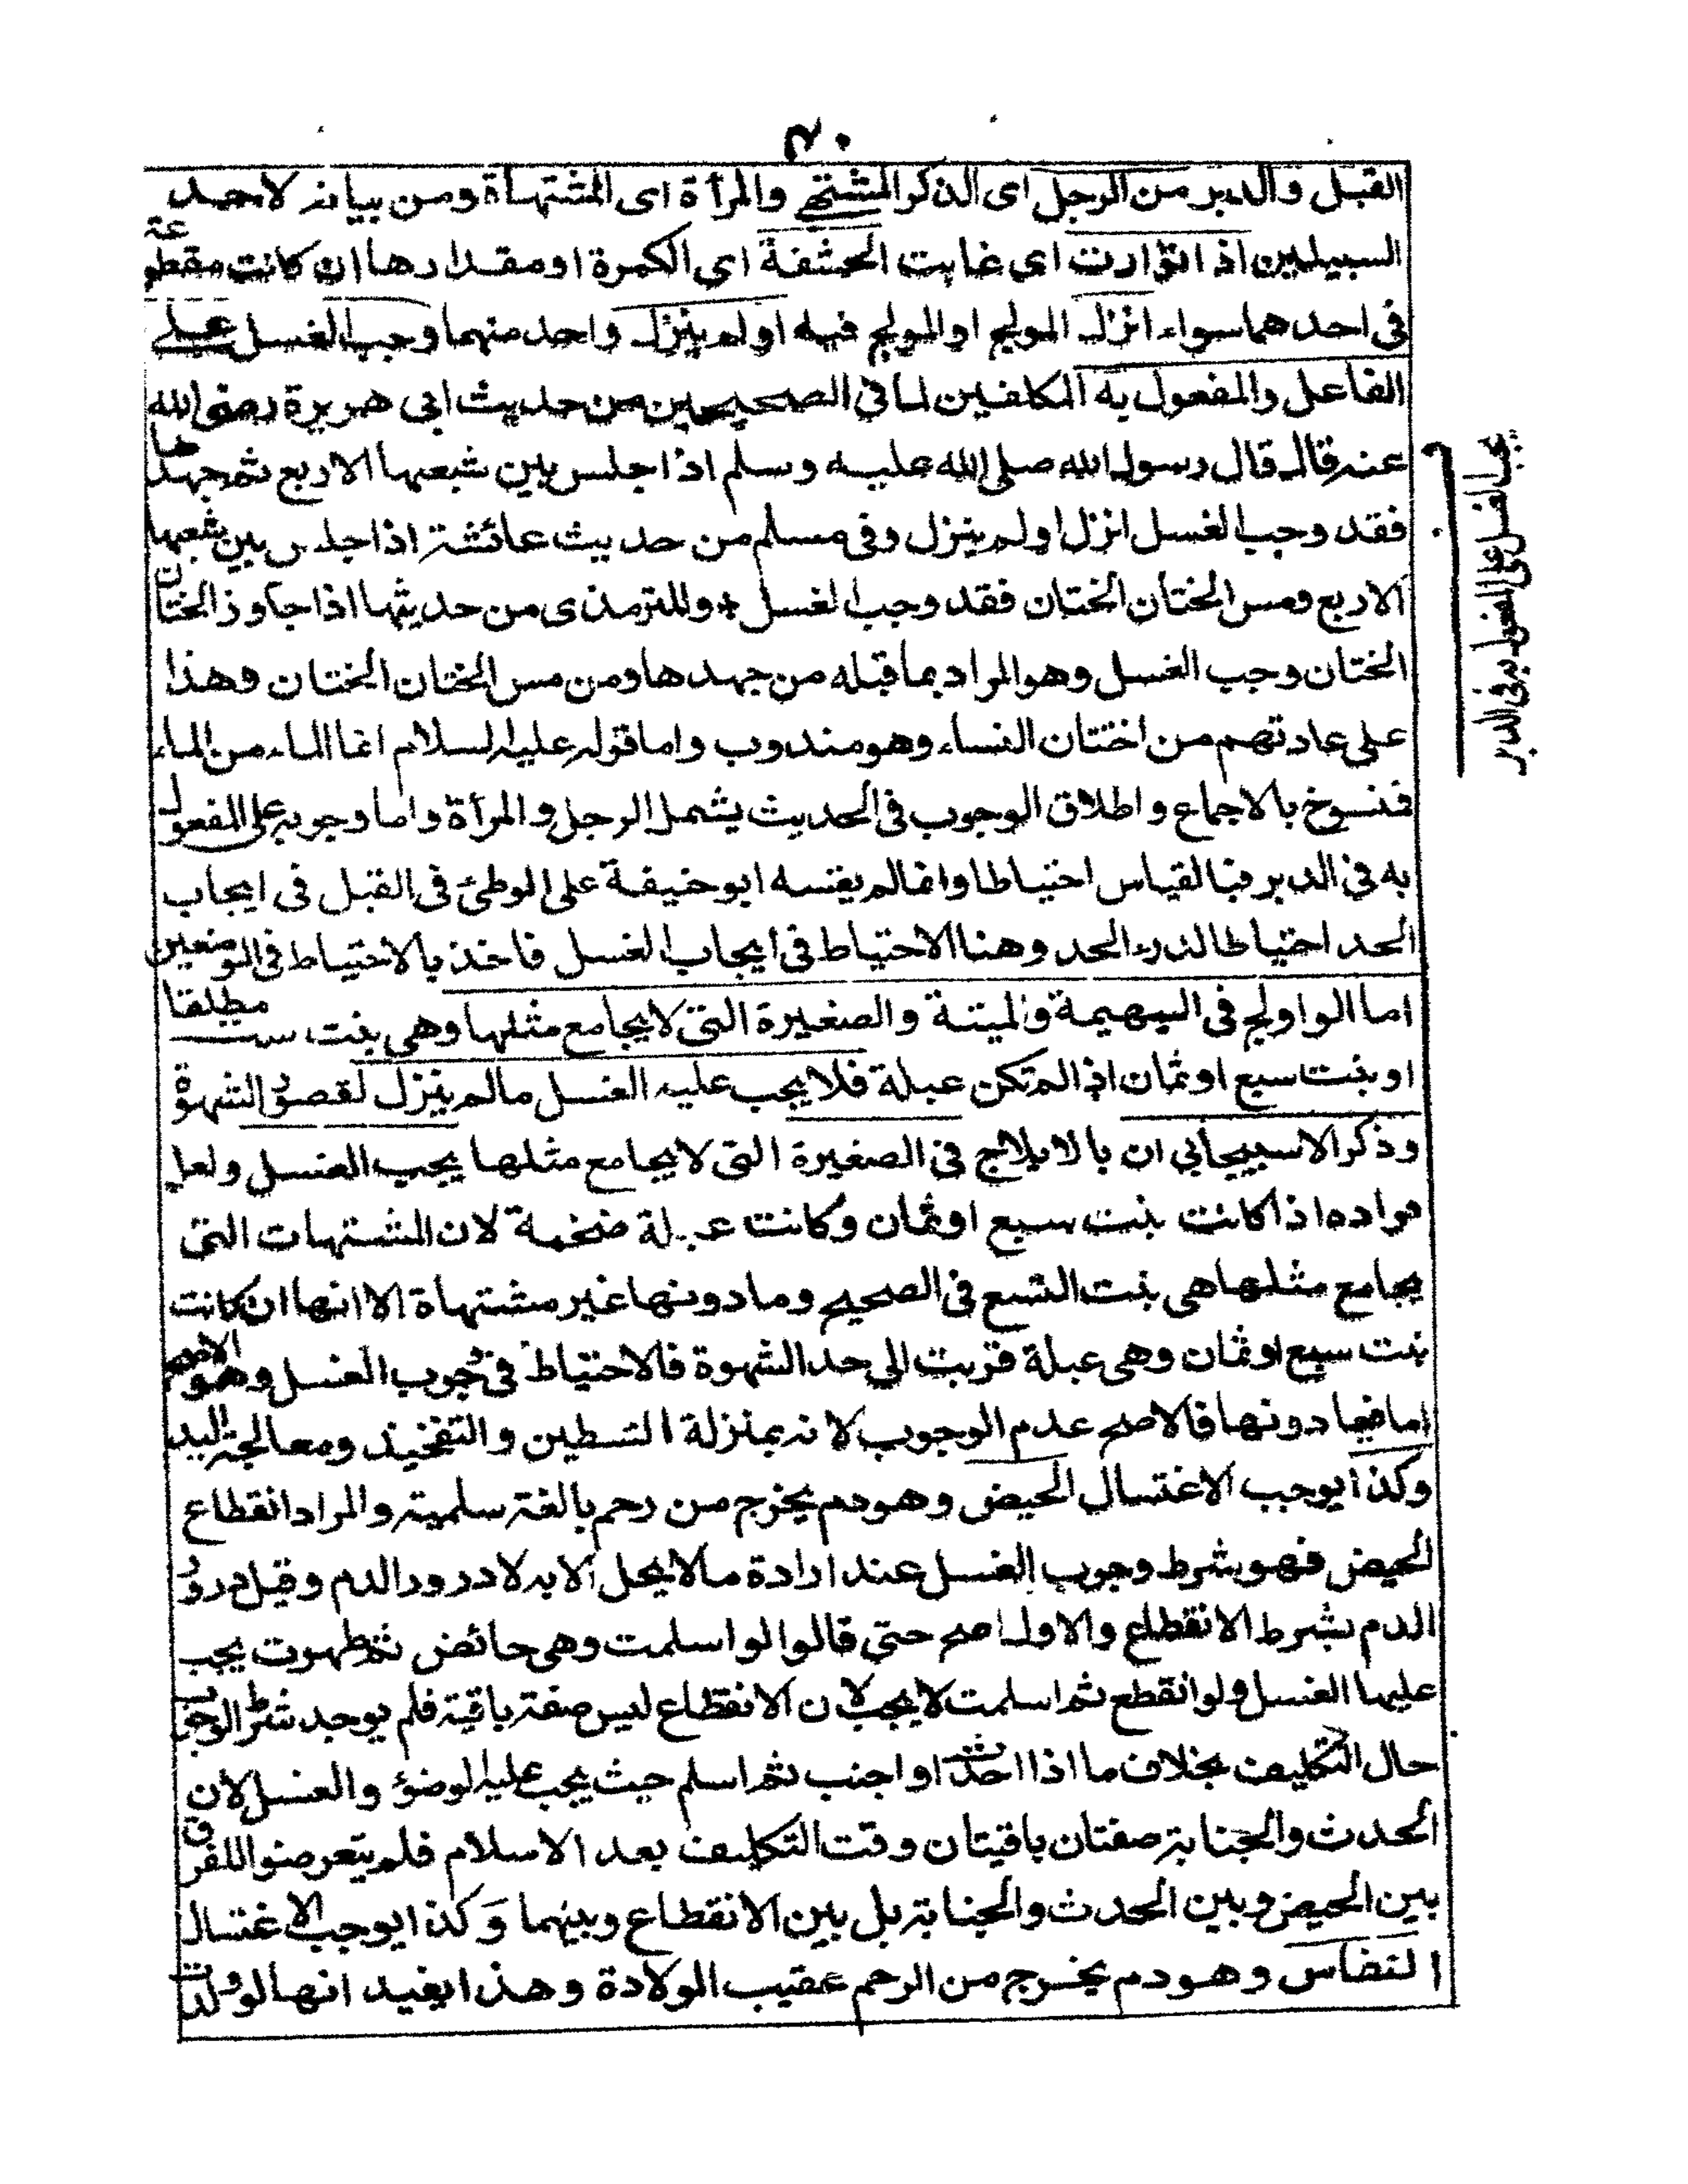 ٤٠
القبل والدبر من الرجل اى الذكر المشتهى والمرأة اى المشتهاة ومن بيانه لاحد
السبيلين اذا توارت اى غابت الحشفة اى الكمرة او مقدارها ان كانت مقطوعة
فى احدهما سواء انزل المولج او المولج فيه او لم ينزل واحد منهما وجب الغسل على
الفاعل والمفعول به المكلفين لما فى الصحيحين من حديث ابى هريرة رضى الله
عنه قال قال رسول الله صلى الله عليه وسلم اذا جلس بين شبعها الاربع ثم جهدها
فقد وجب الغسل انزل او لم ينزل وفى مسلم من حديث عائشة اذا جلس بين شعبها
الاربع ومس الختان الختان فقد وجب الغسل وللترمذى من حديثها اذا جاوز الختان
الختان وجب الغسل وهو المراد بما قبله من جهدها ومن مس الختان الختان وهذا
على عادتهم من اختتان النساء وهو مندوب واما قوله عليه السلام انما الماء من الماء
فمنسوخ بالاجماع واطلاق الوجوب فى الحديث يشمل الرجل والمرأة واما وجوبه على المفعول
به فى الدبر فبالقياس احتياطا وانما لم يقسه ابو حنيفة على الوطئ فى القبل فى ايجاب
الحد احتياطا لدرء الحد وهنا الاحتياط فى ايجاب الغسل فاخذ بالاحتياط فى الموضعين
اما لو اولج فى البهيمة والميتة والصغيرة التى لا يجامع مثلها وهى بنت ست مطلقا
او بنت سبع او ثمان اذا لم تكن عبلة فلا يجب عليه الغسل ما لم ينزل لقصور الشهوة
وذكر الاسبيجابى ان بالايلاج فى الصغيرة التى لا يجامع مثلها يجب الغسل ولعل
مراده اذا كانت بنت سبع او ثمان وكانت عبلة ضخمة لان المشتهات التى
يجامع مثلها هى بنت التسع فى الصحيح وما دونها غير مشتهاة الا انها ان كانت
بنت سبع او ثمان وهى عبلة قربت الى حد الشهوة فالاحتياط فى وجوب الغسل وهو الاصح
اما فيما دونها فالاصح عدم الوجوب لانه بمنزلة التبطين والتفخيذ ومعالجة اليد
وكذا يوجب الاغتسال الحيض وهو دم يخرج من رحم بالغة سليمة والمراد انقطاع
الحيض فهو شرط وجوب الغسل عند ارادة ما لا يحل الا به لا درور الدم وقيل درور
الدم بشرط الانقطاع والاول اصح حتى قالوا لو اسلمت وهى حائض ثم طهرت يجب
عليها الغسل ولو انقطع ثم اسلمت لا يجب لان الانقطاع ليس صفة باقية فلم يوجد شرط الوجوب
حال التكليف بخلاف ما اذا احدث او اجنب ثم اسلم حيث يجب عليه الوضوء والغسل لان
الحدث والجنابة صفتان باقيتان وقت التكليف بعد الاسلام فلم يتعرضوا للفرق
بين الحيض وبين الحدث والجنابة بل بين الانقطاع وبينهما وكذا يوجب الاغتسال
النفاس وهو دم يخرج من الرحم عقيب الولادة وهذا يفيد انها لو ولدت
يجب الغسل على المفعول به فى الدبر